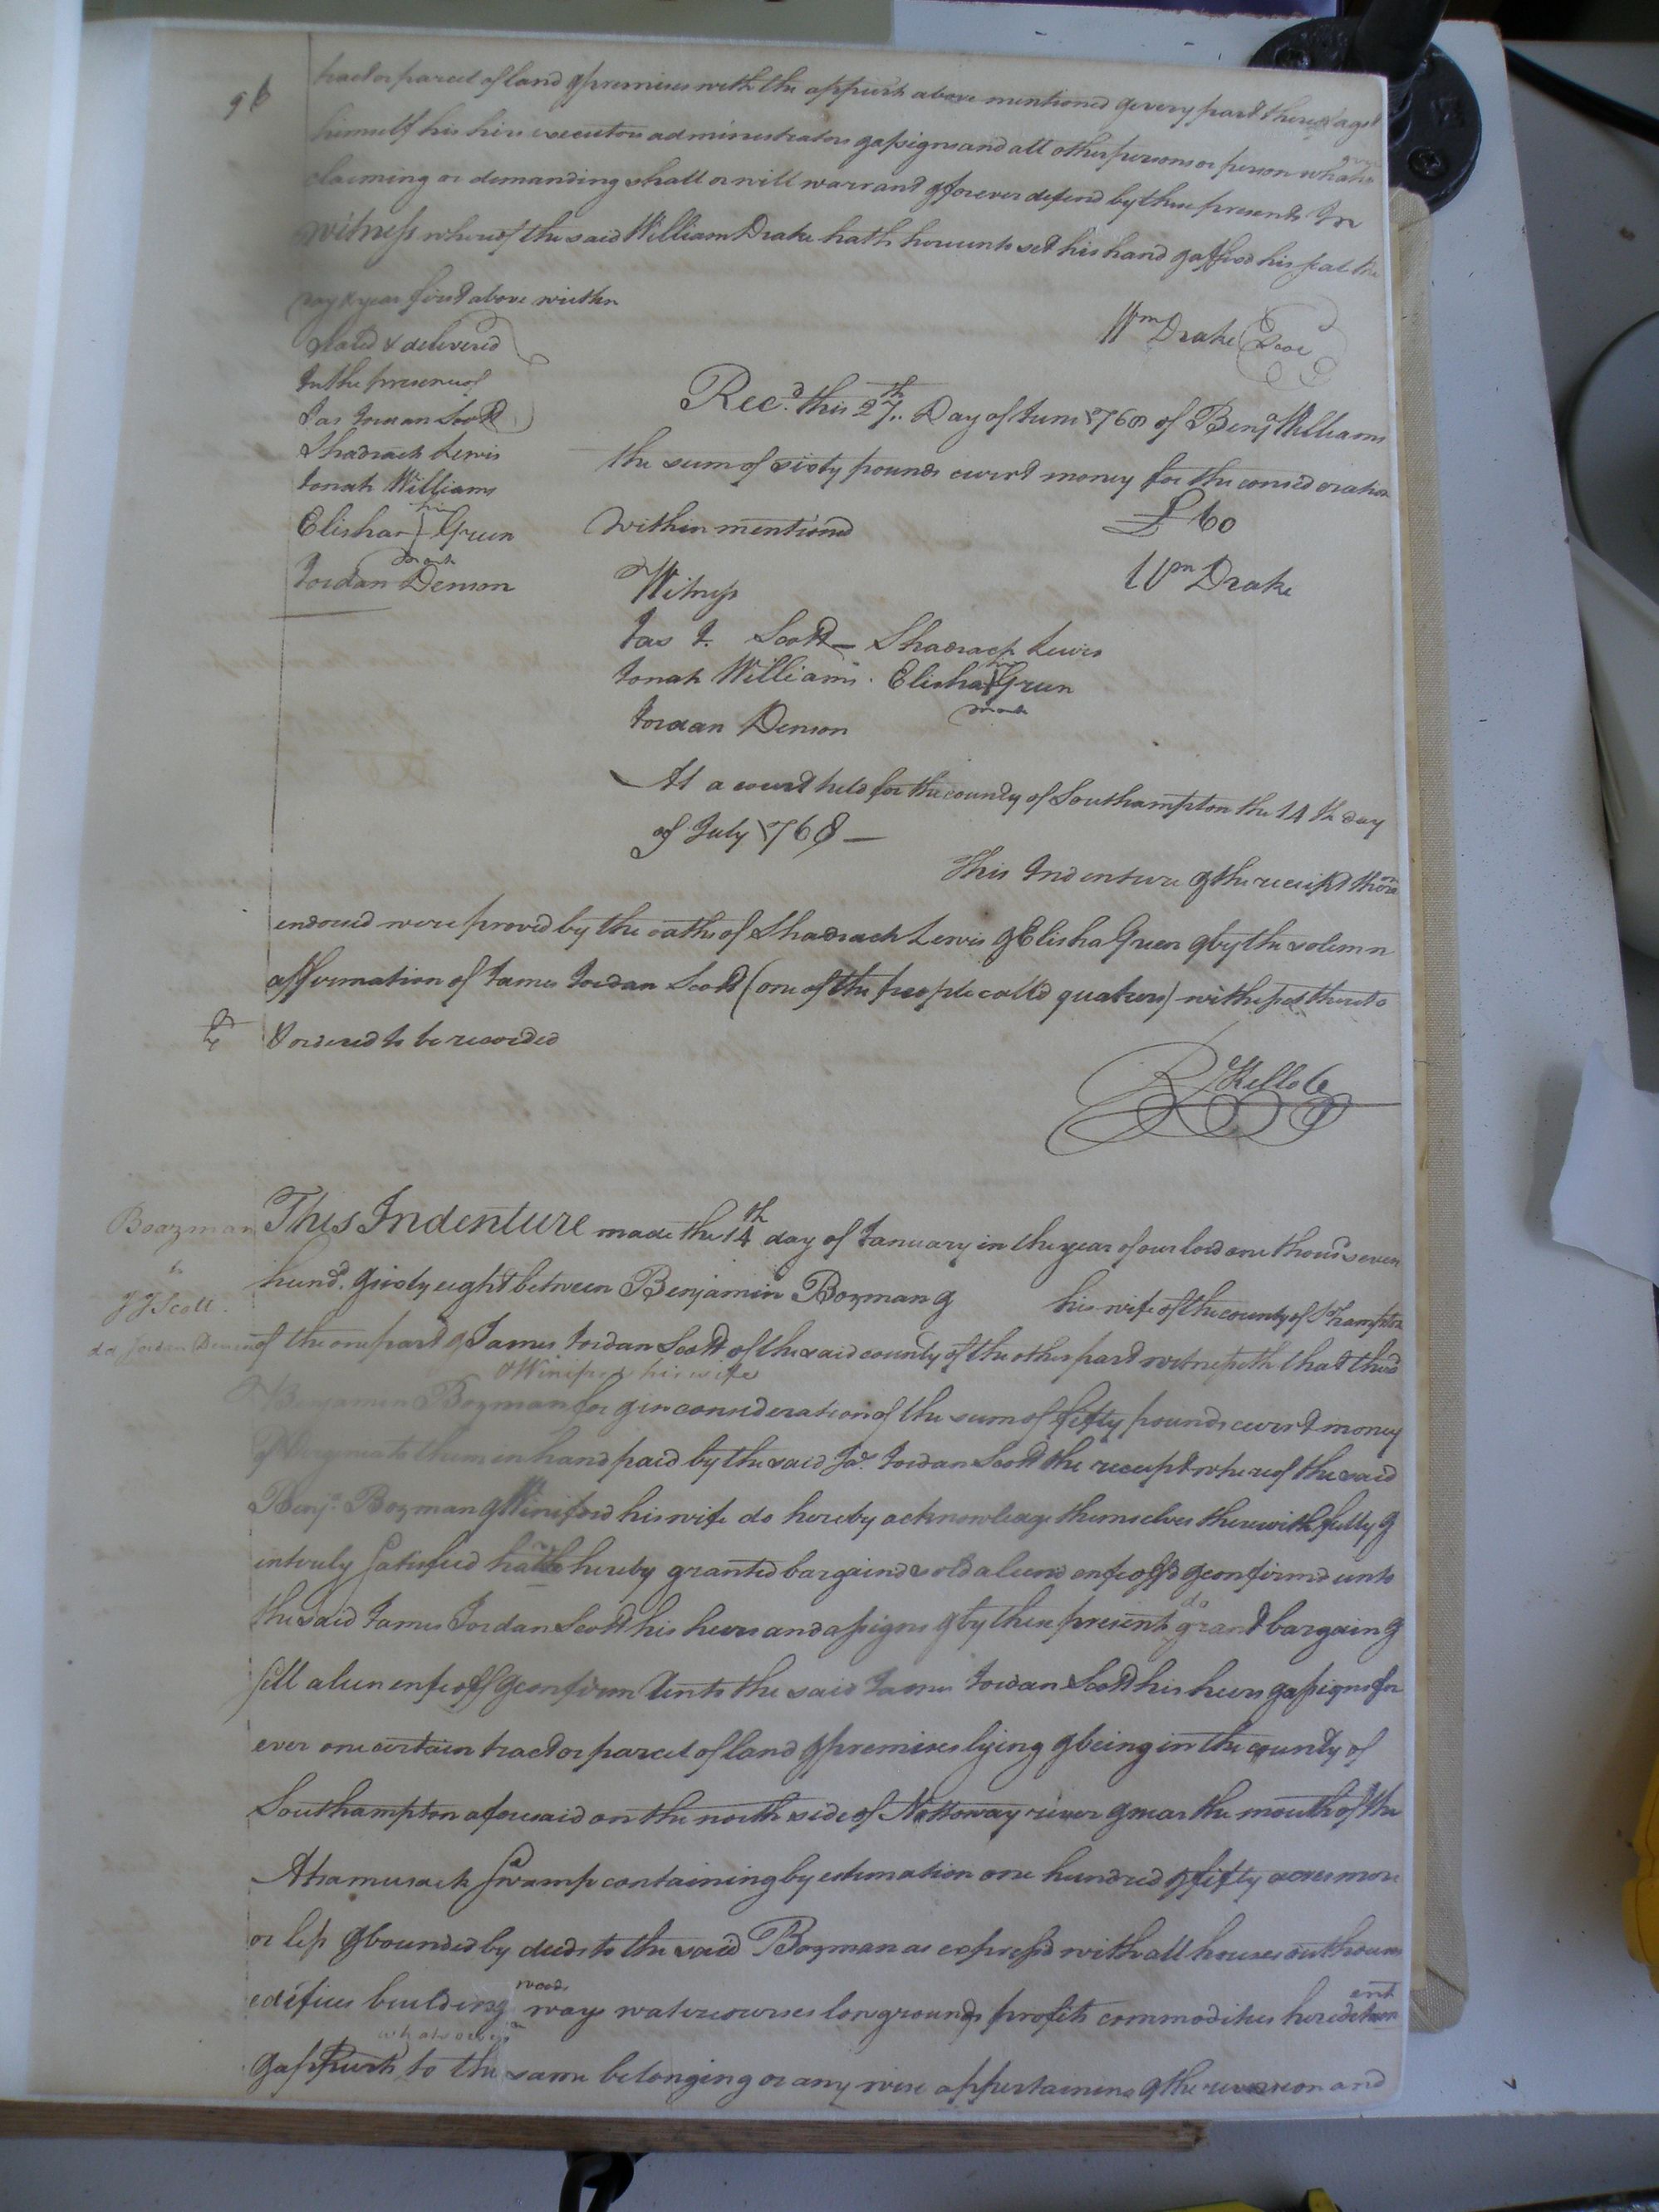 96
tract or parcel of land & premises with the appurts above mentioned & every part thereof agst
himself his hirs executors administrators & assigns and all other persons or person whats
claiming or demanding shall or will warrant & forever defend by these presents In
witness whereof the said William Drake hath hereunto set his hand & affixd his seal the
day & year first above written
Wm Drake
sealed & delivered
In the presence of
Jas Jordan Scott
Shadrach Lewis
Jonah Williams
his
Elisha Green
mark
Jordan Denson
Recd. this 27th Day of June 1768 of Benja Williams
the sum of sixty pounds currt money for the consideration
within mentioned £60
Witness Wm Drake
Jas J. Scott — Shadrach Lewis
Jonah Williams. Elisha Green
mark
Jordan Denson
At a court held for the county of Southampton the 14th day
of July 1768 —
This Indenture & the receipt thereon
endorsed were proved by the oaths of Shadrach Lewis & Elisha Green & by the solemn
affirmation of James Jordan Scott (one of the people calld quakers) witnesses thereto
& ordered to be recorded
R Kello
Boazman
to
J J Scott.
dd Jordan Denson
This Indenture made the 14th day of January in the year of our lord one thousd seven
hund. & sixty eight between Benjamin Bozman & his wife of the county of SHampton
of the one part & James Jordan Scott of the said county of the other part witnesseth that the sd
& Winifred his wife
Benjamen Bozman for & in consideration of the sum of fifty pounds currt money
of Virginia to them in hand paid by the said Jas. Jordan Scott the receipt whereof the said
Benja. Bozman & Winiford his wife do hereby acknowledge themselves therewith fully &
intirely satisfied hath hereby granted bargaind sold aliend enfeoffd & confirmd unto
the said James Jordan Scott his heirs and assigns & by these present do grant bargain &
sell alien enfeoff & confirm Unto the said James Jordan Scott his heirs & assigns for
ever one certain tract or parcel of land & premises lying & being in the county of
Southampton aforesaid on the north side of Nottoway river & near the mouth of the
Atsamusack swamp containing by estimation one hundred & fifty acres more
or less & bounded by deeds to the said Bozman as expressd with all houses outhouses
woods ent
edifices building ways watercourses low grounds profits commodities hereditam
whatsoever
& appurts to the same belonging or any wise appertaining & the reversion and